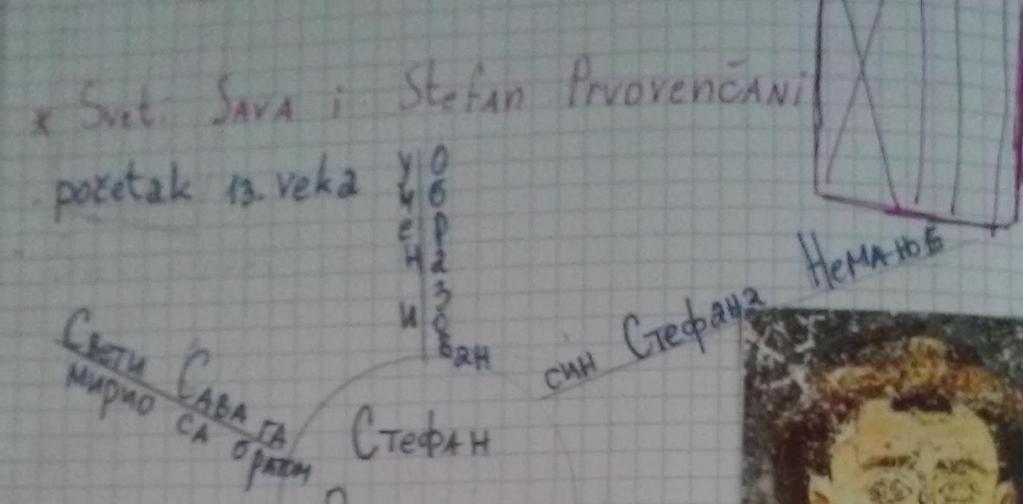 x Svet. SAVA i StefAN PrvovenčANi
početak 13. veka
учен и
образован
син Стефана НеМАЊЕ
Свети САВА ГА
мирио СА братом
СТЕФАН